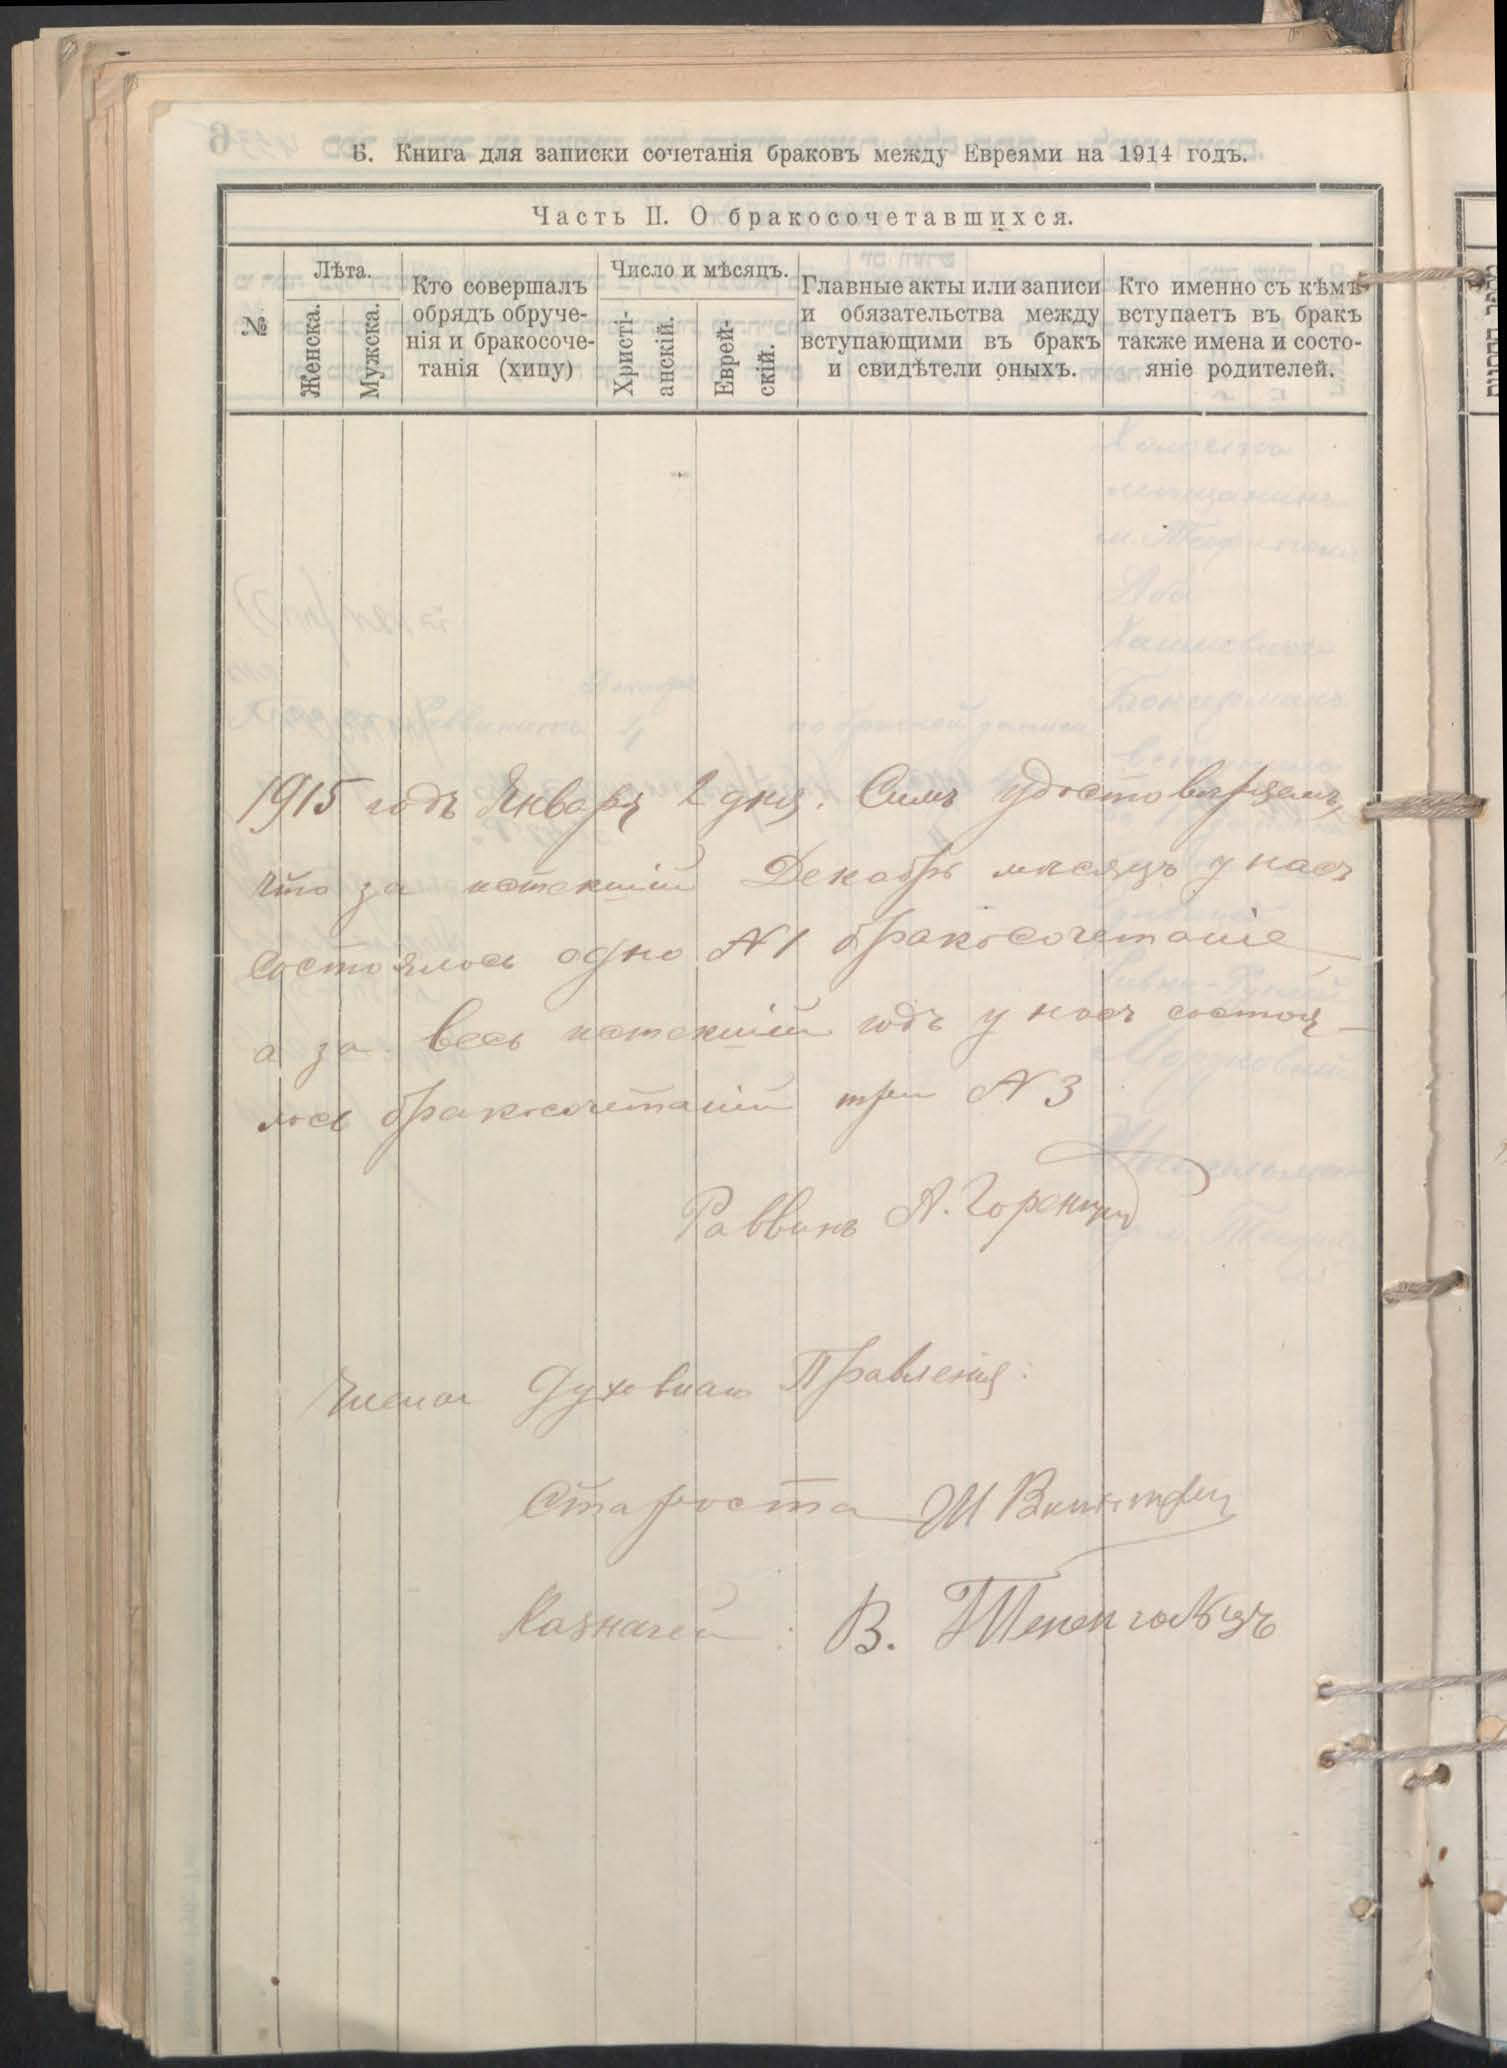 Б. Книга для записки сочетанія браковъ между Евреями на 1914 годъ.
Часть II. О бракосочетавшихся.
№
Лѣта.
Женска.
Мужска.
Кто совершалъ
обрядъ обруче-
нія и бракосоче-
танія (хипу)
Число и мѣсяцъ.
Христі-
анскій.
Еврей-
скій.
Главные акты или записи
и обязательства между
вступающими въ бракъ
и свидѣтели оныхъ.
Кто именно съ кѣмъ
вступаетъ въ бракъ
также имена и состо-
яніе родителей.
1915 годъ Января 2 дня. Симъ удостовѣряемъ,
что за истекшій Декабрь мѣсяцъ у насъ
состоялось одно №1 бракосочетаніе
а за весь истекшій годъ у насъ состоя-
лось бракосочетаній три № 3
Раввинъ А.
Члены Духовнаго Правленія:
Староста Ш
Казначей: В.